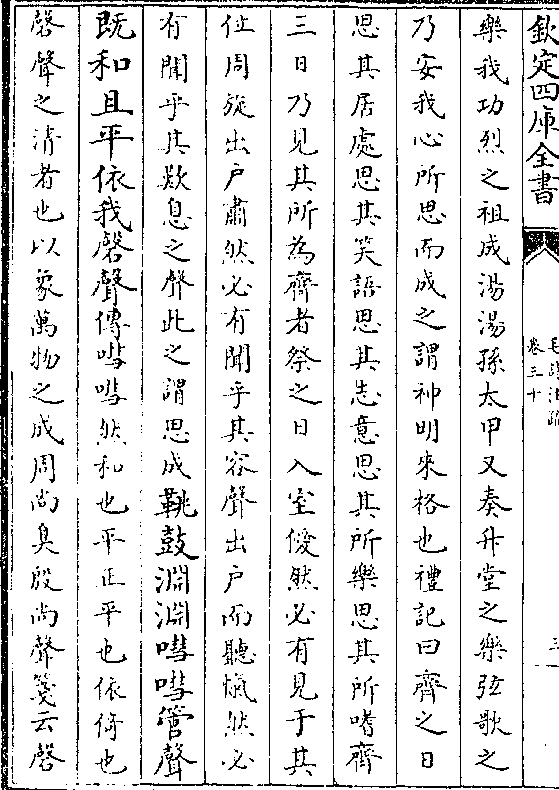 欽定四庫全書
毛詩注疏
卷三十
三
樂我功烈之祖成湯湯孫太甲又奏升堂之樂弦歌之
乃安我心所思而成之謂神明來格也禮記曰齊之日
思其居處思其笑語思其志意思其所樂思其所嗜齊
三日乃見其所為齊者祭之日入室僾然必有見于其
位周旋出户肅然必有聞乎其容聲出户而聽愾然必
有聞乎其歎息之聲此之謂思成鞉鼓淵淵嘒嘒管聲
既和且平依我磬聲傳嘒嘒然和也平正平也依倚也
磬聲之清者也以象萬物之成周尚臭殷尚聲箋云磬